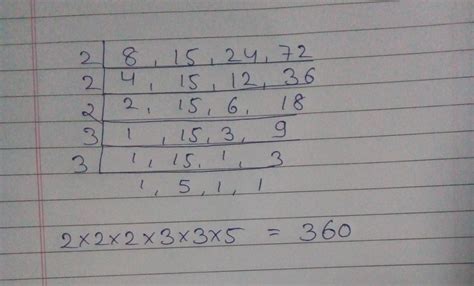 2 | 8 , 15 , 24 , 72
2 | 4 , 15 , 12 , 36
2 | 2 , 15 , 6 , 18
3 | 1 , 15 , 3 , 9
3 | 1 , 15 , 1 , 3
1 , 5 , 1 , 1
2×2×2×3×3×5 = 360